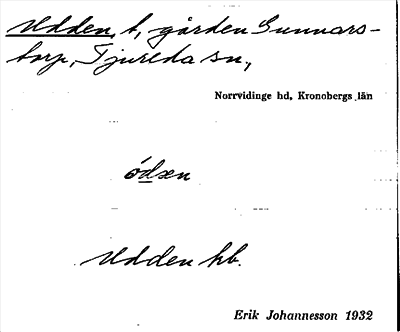 Udden, t, gården Gunnars-
torp, Tjureda sn,
Norrvidinge hd, Kronobergs län
Udden hb.
Erik Johannesson 1932